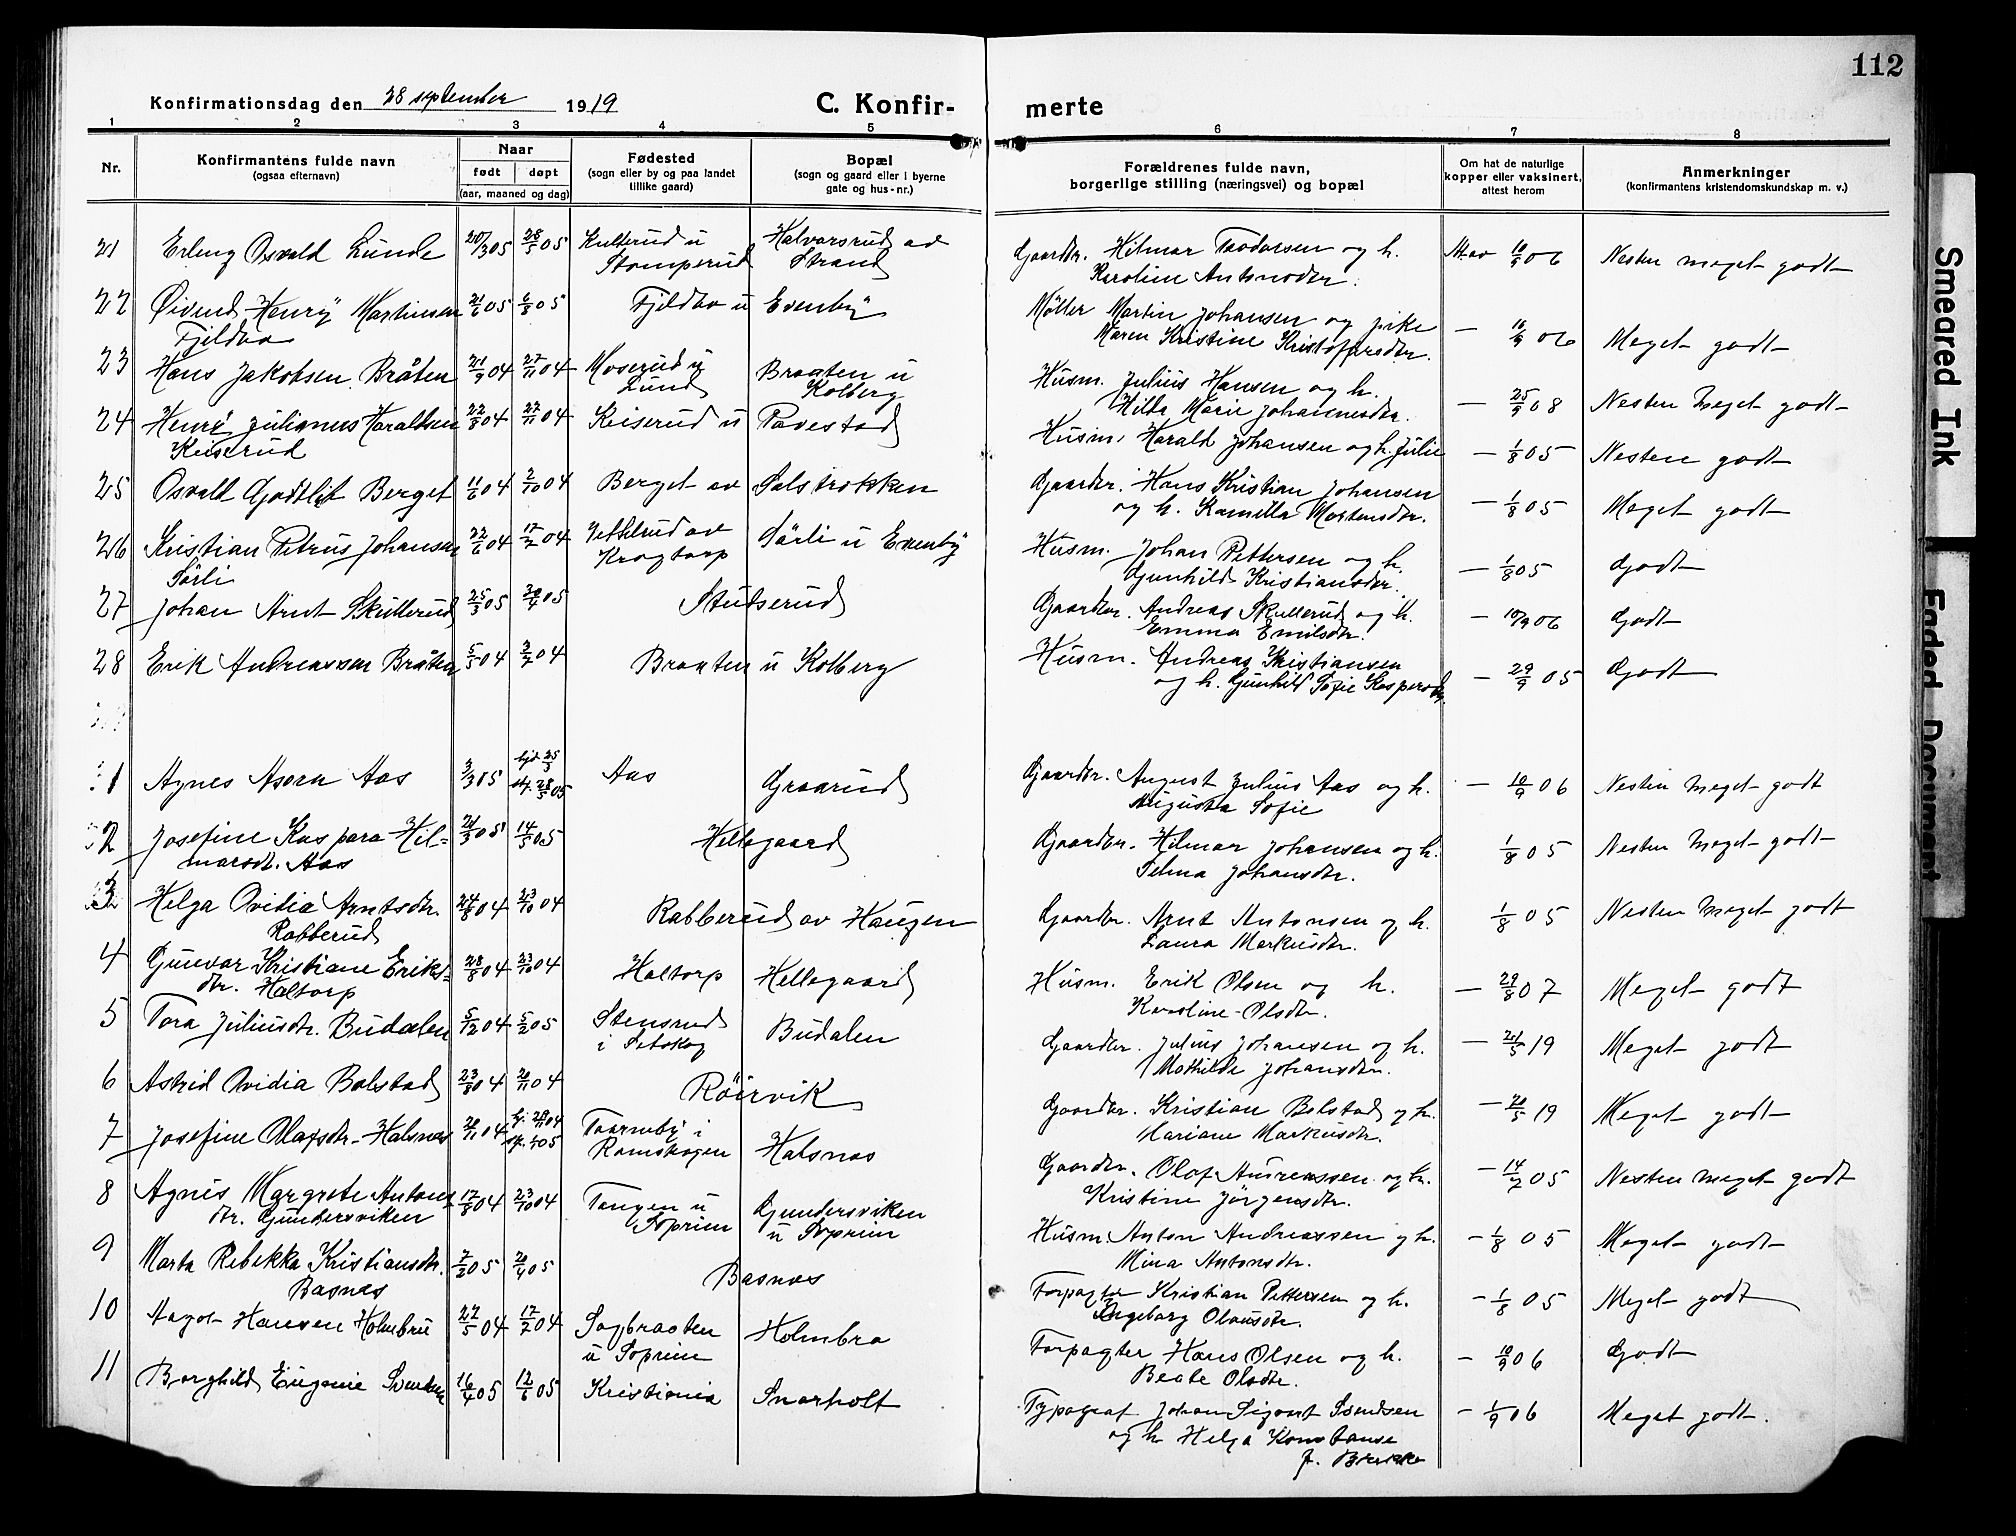 112
Konfirmationsdag den 28 september 1919
C. Konfir- merte
1 2 3 4 5 6 7 8
Nr.
Konfirmantens fulde navn
(ogsaa efternavn)
Naar
født døpt
(aar, maaned og dag)
Fødested
(sogn eller by og paa landet
tillike gaard)
Bopæl
(sogn og gaard eller i byerne
gate og hus-nr.)
Forældrenes fulde navn,
borgerlige stilling (næringsvei) og bopæl
Om hat de naturlige
kopper eller vaksinert,
attest herom
Anmerkninger
(konfirmantens kristendomskundskap m. v.)
21 Erling Osvald Lunde 20/3 05 28/5 05 Kulterud u Stomperud Halvorsrud av Strand Gaardbr. Hilmar Teodorsen og h. Karoline Antonsdtr. 10/9 06 Nesten meget godt
22 Øivind Henry Martinsen Fjeldbo 21/6 05 6/8 05 Fjeldbo u Evenby Møller Martin Johansen og pike Maren Kristine Kristofersdtr. - 10/9 06 Meget godt
23 Hans Jakobsen Bråten 21/9 04 27/11 04 Moserud u Lund Braaten u Kolberg Husm. Julius Hansen og h. Hilda Marie Johannesdtr. - 25/9 08 Nesten meget godt
24 Henry Julianus Haraldsen Keiserud 22/8 04 27/11 04 Keiserud u Tovestad Husm. Harald Johansen og h. Julie - 1/8 05 Nesten godt
25 Osvald Godtlib Berget 11/6 04 2/10 04 Berget av Solstrokken Gaardbr. Hans Kristian Johansen og h. Kamilla Mortensdtr. - 1/8 05 Meget godt
26 Kristian Petrus Johansen Sørli 22/6 04 17/7 04 Krogtorp Sørli u Evenby Husm. Johan Pettersen og h. Gunhild Kristiansdtr. - 1/8 05 Godt
27 Johan Arnt Skullerud 25/3 05 30/4 05 Stutserud Gaardbr. Andreas Skullerud og h. Emma Emilsdtr. - 10/9 06 Godt
28 Erik Andreassen Bråten 5/5 04 3/7 04 Braaten u Kolberg Husm. Andreas Kristiansen og h. Gunhild Sofie Kaspersdtr. - 29/9 05 Godt
1 Agnes Asora Aas 3/3 05 hjd. 25/3 st. 28/5 05 Aas Graarud Gaardbr. August Julius Aas og h. Augusta Sofie - 10/9 06 Nesten meget godt
2 Josefine Kaspara Hilmarsdt. Aas 21/3 05 14/5 05 Hellegaard Gaardbr. Hilmar Johansen og h. Selma Johansdtr. 1/8 05 Nesten meget godt
3 Helga Ovidia Arntsdtr. Rabberud 24/8 04 23/10 04 Rabberud av Haugen Gaardbr. Arnt Antonsen og h. Laura Markusdtr. 1/8 05 Nesten meget godt
4 Gunvor Kristiane Eriksdtr. Holtorp 28/8 04 23/10 04 Holtorp Hellegaard Husm. Erik Olsen og h. Karoline Olsdtr. - 29/8 07 Meget godt
5 Tora Juliusdtr. Budalen 5/12 04 5/2 05 Stensrud i Setskog Budalen Gaardbr. Julius Johansen og h. Mathilde Johansdtr. - 20/5 19 Meget godt
6 Astrid Ovidia Bolstad 23/8 04 20/11 04 Röirvik Gaardbr. Kristian Bolstad og h. Mariane Markusdtr. - 20/5 19 Meget godt
7 Josefine Olafsdtr. Halsnes 20/11 04 Taarneby i Romskogen Halsnæs Gaardbr. Olaf Andreassen og h. Kristine Jörgensdtr. - 14/7 05 Nesten meget godt
8 Agnes Margrete Antonsdtr. Gundersviken 17/8 04 23/10 04 Tangen u Soprim Gundersviken u Soprim Husm. Anton Andreassen og h. Mina Antonsdtr. - 1/8 05 Meget godt
9 Marta Rebekka Kristiansdtr. Basnæs 7/2 05 20/4 05 Basnæs Forpagter Kristian Pettersen og h. Ingeborg Olausdtr. - 1/8 05 Meget godt
10 Aagot Hansen Holmbro 22/5 04 17/7 04 Sagbraaten u Soprim Holmbro Forpagter Hans Olsen og h. Beate Olsdtr. - 10/9 06 Godt
11 Borghild Eugenie Svendsen 16/4 05 12/6 05 Kristiania Snarholt Typograf Johan Sigvart Svendsen og h. Helga Konstanse f. Brekke - 1/9 06 Meget godt.
Smeared Ink
Faded Document